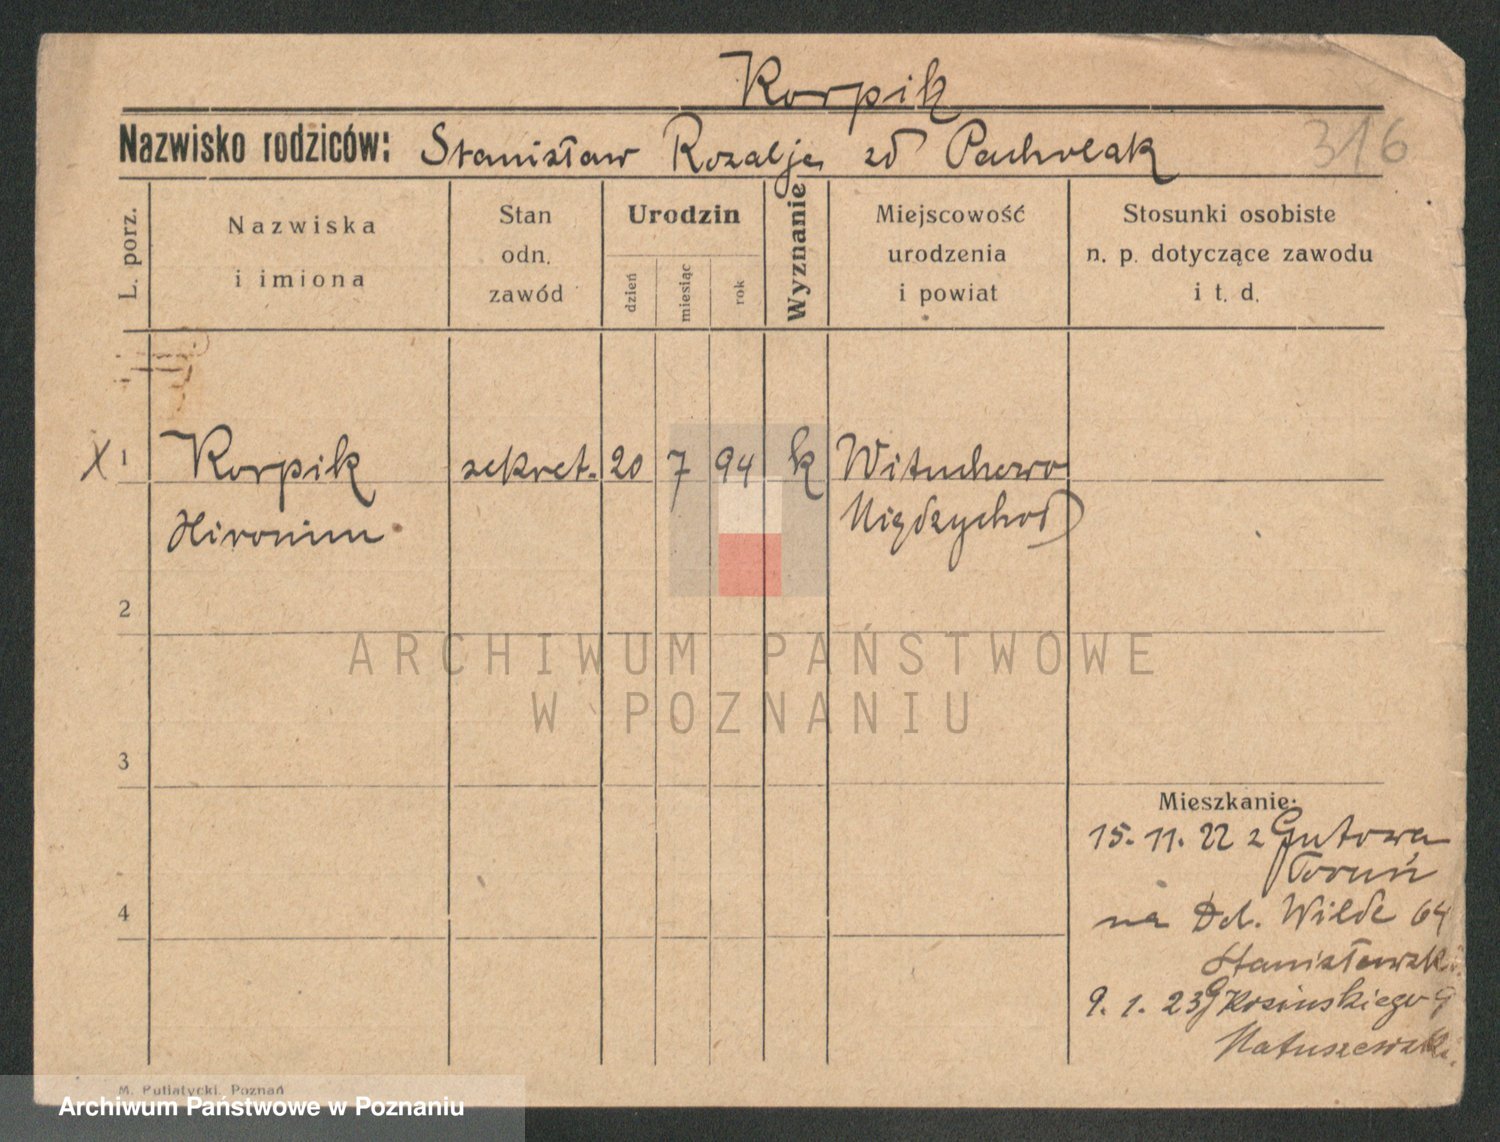 Korpik
Nazwisko rodziców: Stanisław Rozalja zd Pacholak
316
L. porz.
Nazwiska
i imiona
Stan
odn.
zawód
Urodzin
dzień
miesiąc
rok
Wyznanie
Miejscowość
urodzenia
i powiat
Stosunki osobiste
n. p. dotyczące zawodu
i t. d.
X 1 Korpik sekret. 20 7 94 k Wituchowo
Hironim Międzychod
2
ARCHIWUM PAŃSTWOWE
W POZNANIU
3
Mieszkanie:
15. 11. 22 z Gutowa
Toruń
4
na Dol. Wilde 64
Stanisławski
9. 1. 23 Kosińskiego 9
Matuszewski
M. Putiatycki, Poznań
Archiwum Państwowe w Poznaniu